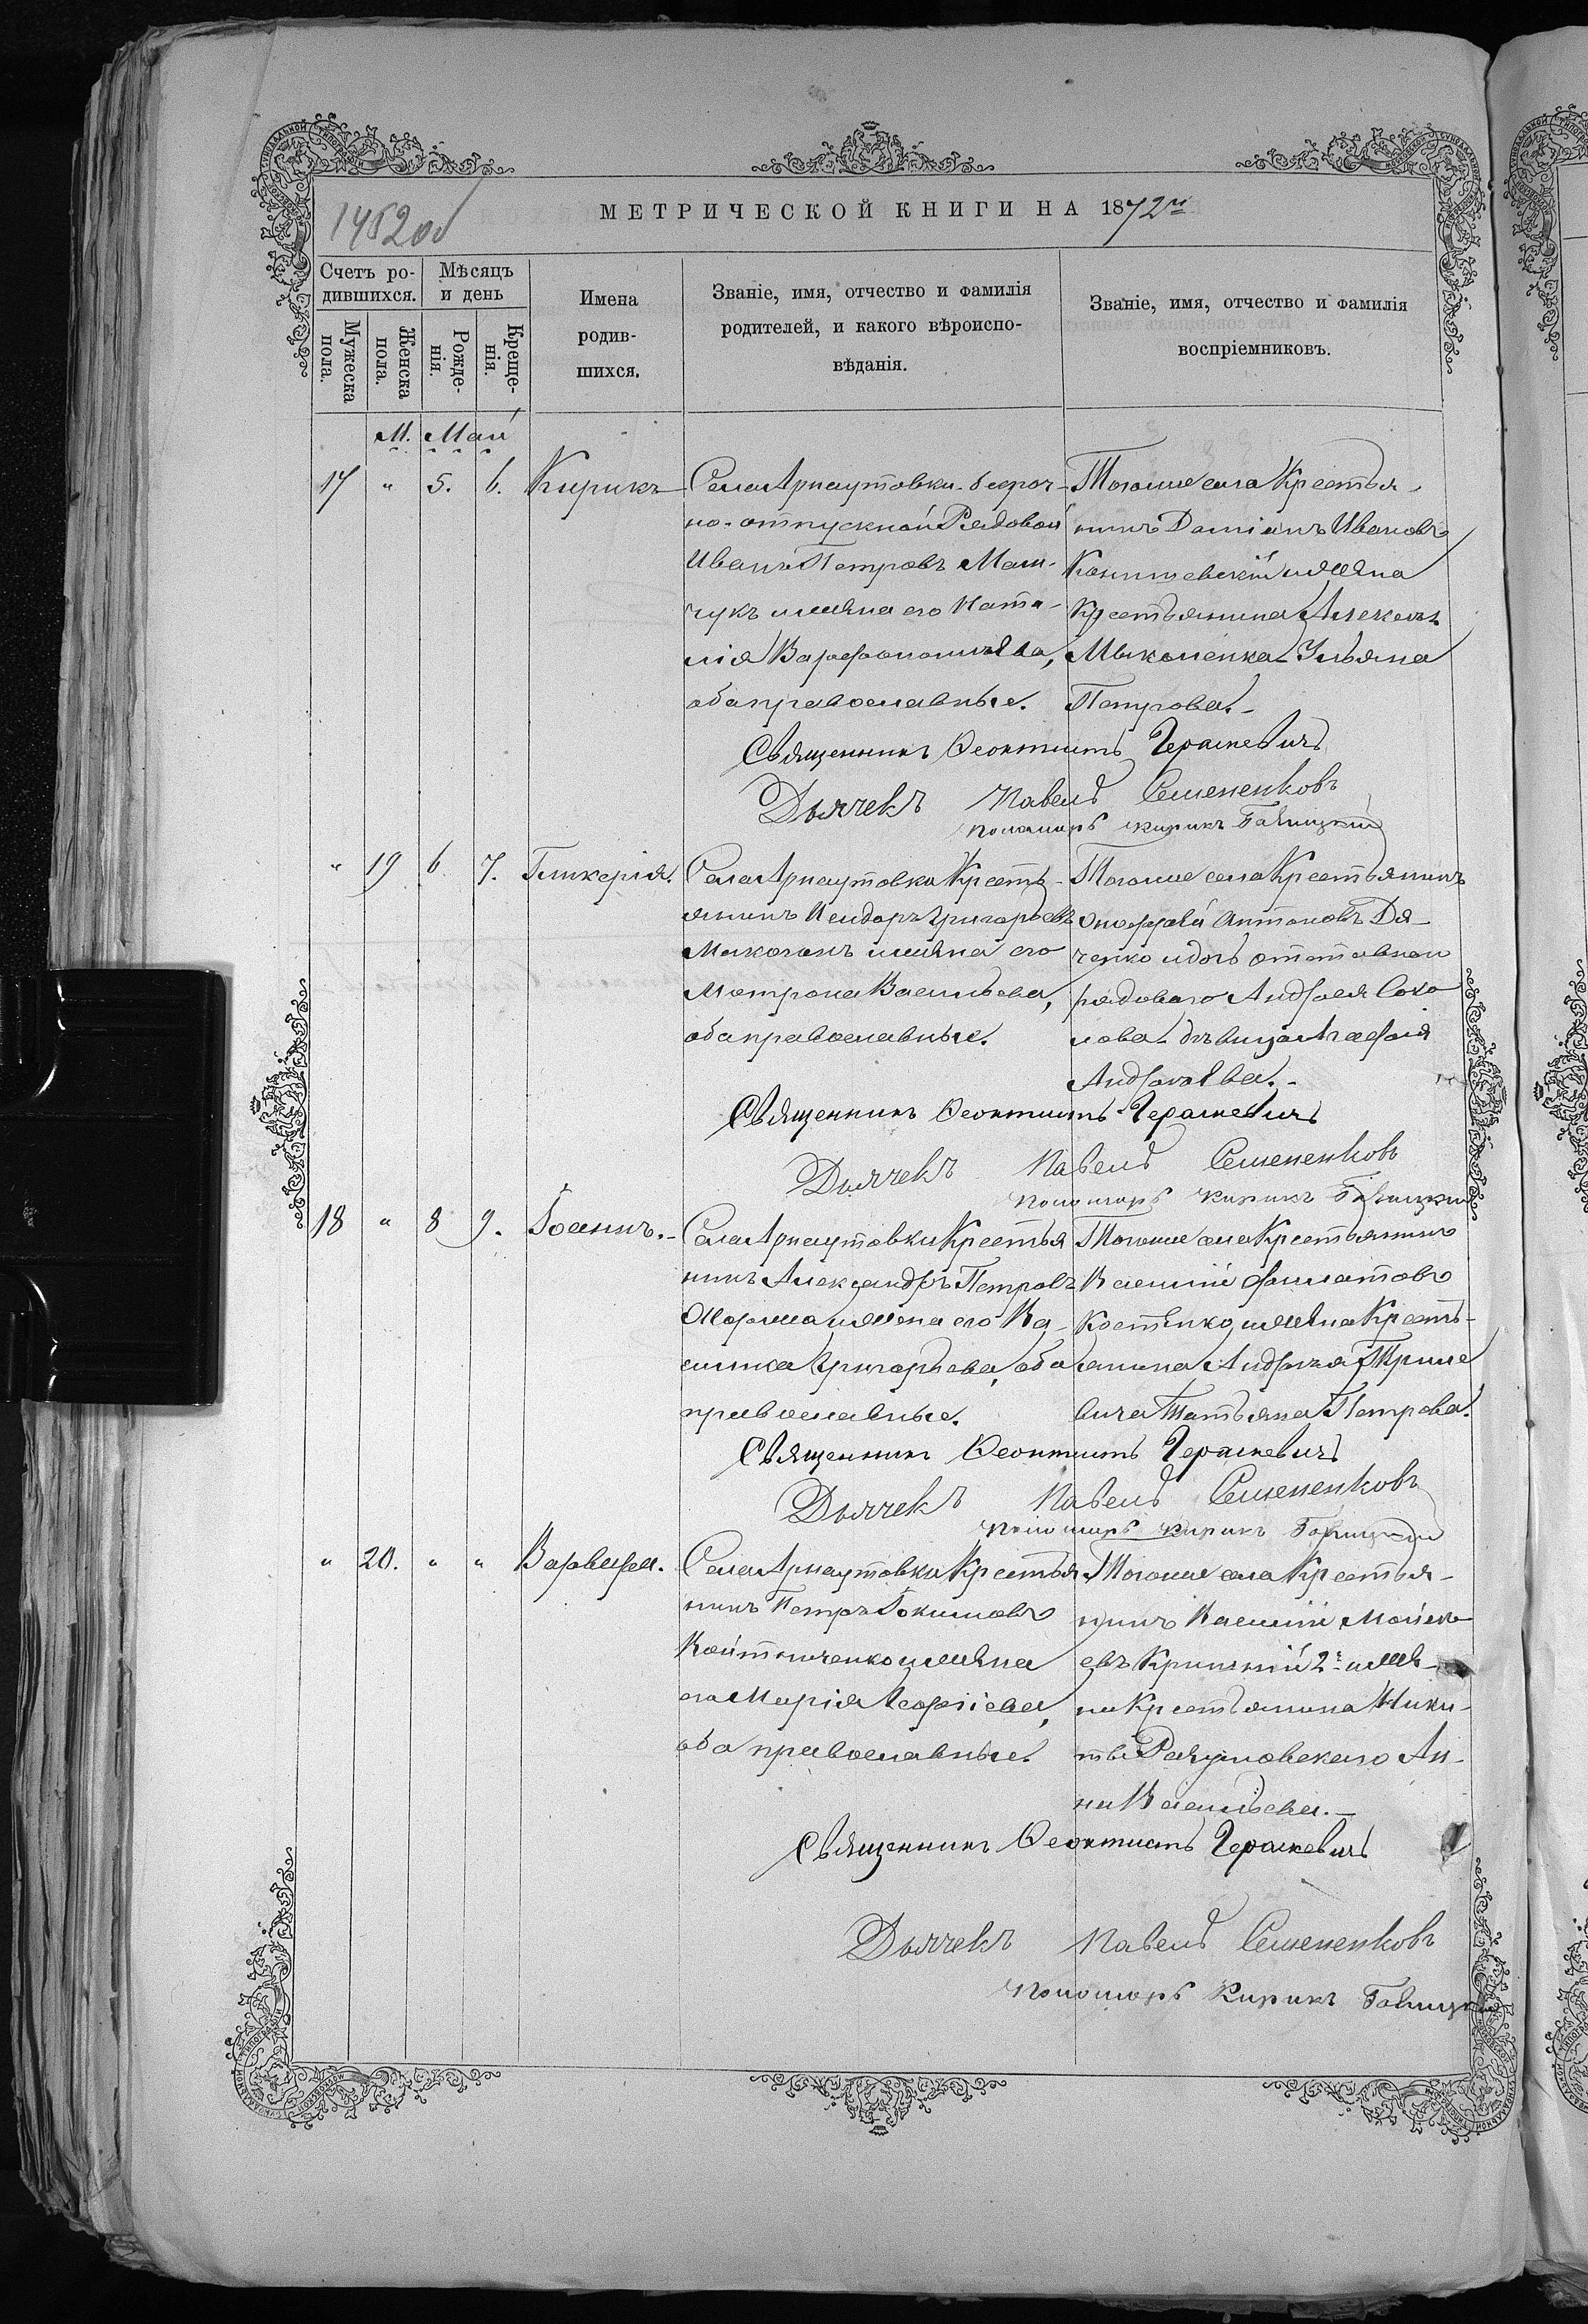 1452об
МЕТРИЧЕСКОЙ КНИГИ НА 1872й
Счетъ ро-
дившихся.
Мѣсяцъ
и день
Мужеска
пола.
Женска
пола.
Рожде-
нія.
Креще-
нія.
Имена
родив-
шихся.
Званіе, имя, отчество и фамилія
родителей, и какого вѣроиспо-
вѣданія.
Званіе, имя, отчество и фамилія
воспріемниковъ.
М. Май
17 " 5. 6. Кирикъ
Села Арнаутовки безсроч-
но-отпускной Рядовой
Иванъ Петровъ
и жена его Ната-
лія Варфоломѣева,
оба православные.
Тогоже села Крестья-
нинъ Даміанъ Ивановъ
и жена
Крестьянина
Ульяна
Петрова.
Священникъ Феоктистъ Гераскевичъ
Дьячекъ Павелъ Семененковъ
Пономарь Кирикъ
" 19 6 7. Гликерія.
Села Арнаутовки Кресть-
янинъ Исидоръ Григорьевъ
и жена его
Матрона Васильева,
оба православные.
Тогоже села Крестьянинъ
Онофрій Антоновъ Дя-
ченко и дочь отставнаго
рядоваго Андрея Соко
лова дѣвица Агафія
Андреева.
Священникъ Феоктистъ Гераскевичъ
Дьячекъ Павелъ Семененковъ
Пономарь Кирикъ
18 " 8 9. Іоаннъ.
Села Арнаутовки Крестья
нинъ Александръ Петровъ
и жена его Ва-
силиса Григорьева, оба
православные.
Тогоже села Крестьянинъ
Василій Филатовъ
Костенко и жена Кресть-
янина Андрея
Татьяна Петрова.
Священникъ Феоктистъ Гераскевичъ
Дьячекъ Павелъ Семененковъ
Пономарь Кирикъ
" 20. " " Варвара.
Села Арнаутовки Крестья
нинъ Петръ Іокимовъ
и жена
его Марія Георгіева,
оба православные.
Тогоже села Крестья-
нинъ Василій Мойсе-
евъ 2й и же-
на Крестьянина Ники-
ты Разумовскаго Ан-
на Васильева.
Священникъ Феоктистъ Гераскевичъ
Дьячекъ Павелъ Семененковъ
Пономарь Кирикъ